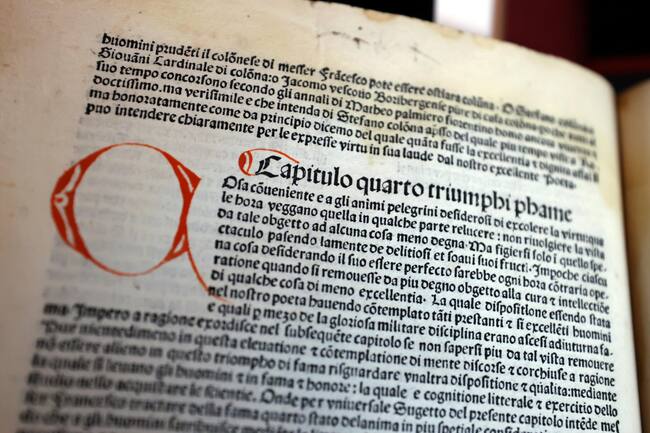 huomini prudēti il colōnese di messer Frācesco pote essere ostiara colūna. O Stefano
Giouāni Cardinale di colōna: o Jacomo vescouo Bozibergense pure di casa colōna: poche
suo tempo concorsono secondo gli annali di Matheo palmiero fiorentino homo
doctissimo. ma verisimile e che intenda di Stefano colōna apsso del quale piu tempo
ma honoratamente come da principio dicemo del quale quāta fusse la excellentia e dignita
puo intendere chiaramente per le expresse virtu in sua laude dal nostro excellente Poeta.
Capitulo quarto triumphi phame
Q Osa cōueniente e a gli animi pelegrini desiderosi di excolere la virtu: qua
le hora veggano quella in qualche parte relucere: non riuolgere la vista
da tale obgetto ad alcuna cosa meno degna. Ma figiersi solo i quello spe
ctaculo pasendo lamente de delitiosi et soaui suoi fructi. Impoche ciascu
na cosa desiderando il suo essere perfecto sarebbe ogni hora cōtraria ope
ratione quando si remouesse da piu degno obgetto alla cura ⁊ intellectiōe
di qualche cosa di meno excellentia. La quale dispositione essendo stata
nel nostro poeta hauendo cōtemplato tāti prestanti ⁊ si excellēti huomini
e quali p mezo de la gloriosa militare disciplina erano ascesi
ma. Impero a ragione exordisce nel subsequēte capitolo se non sapersi piu da tal vista remouere
Pur nientedimeno in questa eleuatione ⁊ cōtemplatione di mente discorse ⁊ corchiuse a ragione
nō essere alieno in questo triompho di fama risguardare vnaltra dispositione ⁊ qualita: mediante
la quale si leuano gli huomini ⁊ in fama ⁊ honore: la quale e cognitione litterale ⁊ exercitio dello
studio nello acquistare le scientie. Onde per vniuersale Sugetto del presente capitolo intēde mes
ser Francesco tractare della fama quarto stato delanima in piu speciale